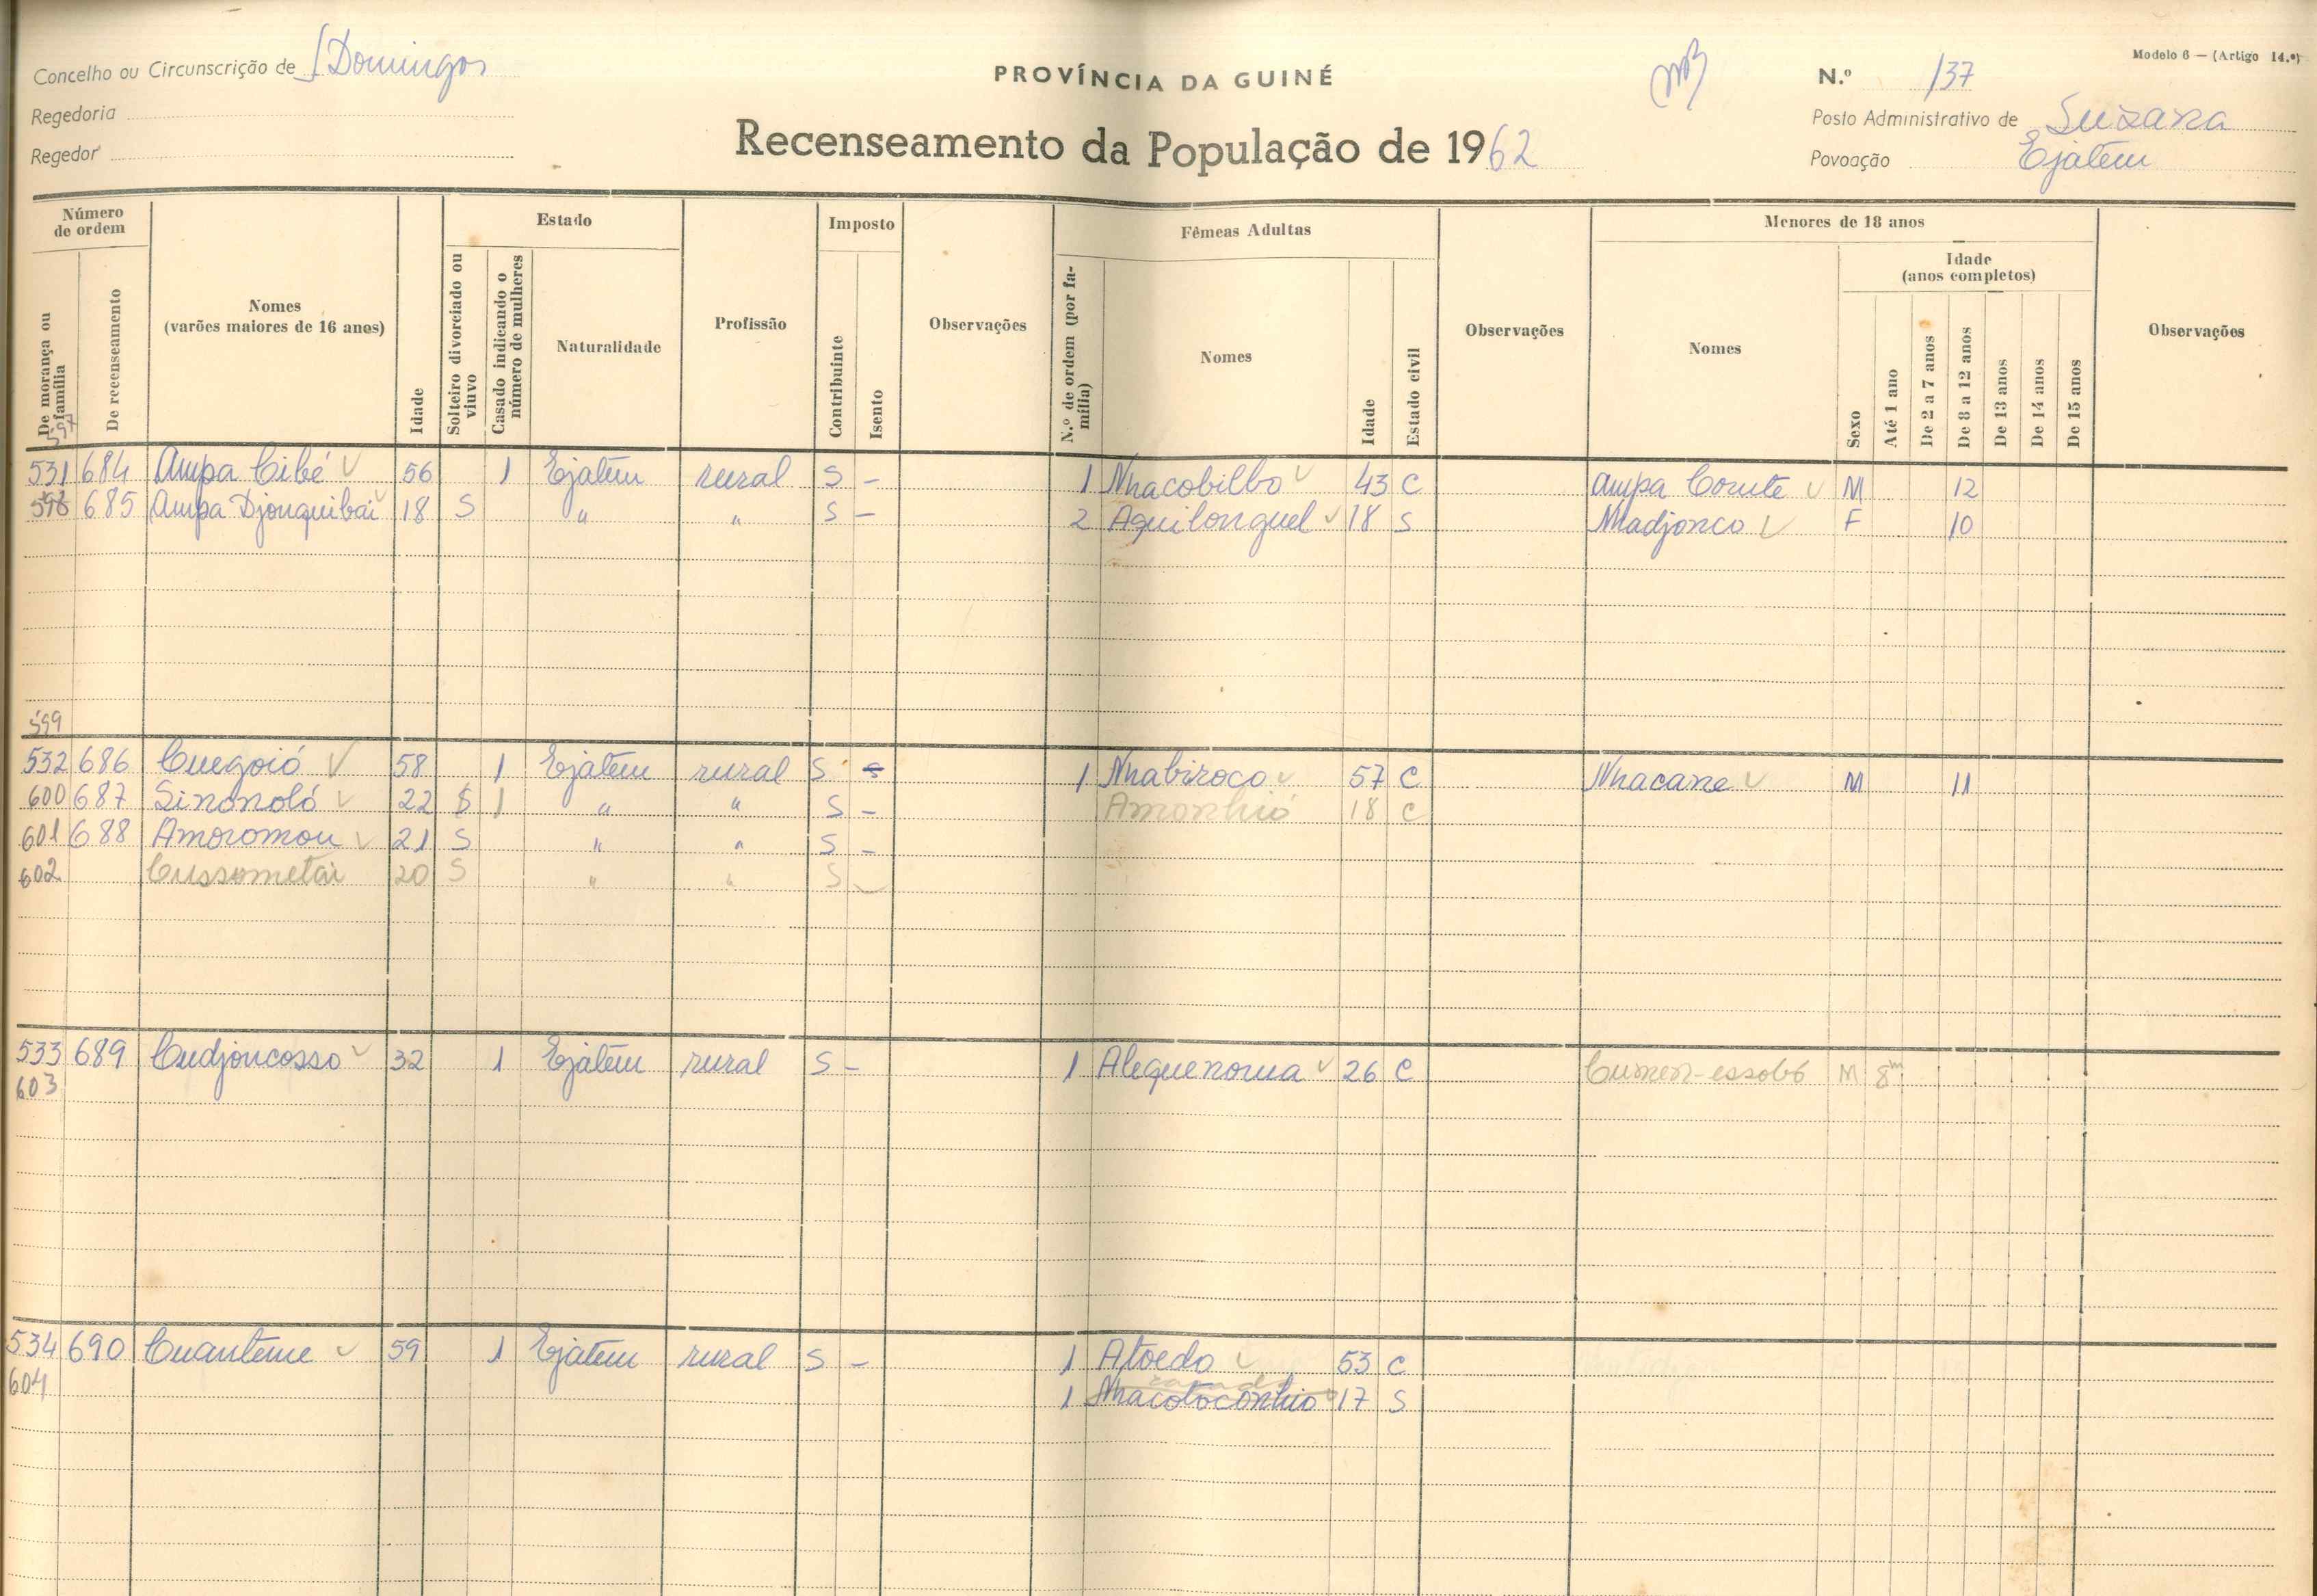 Modelo 6 — (Artigo 14.º)
Concelho ou Circunscrição de S Domingos
PROVÍNCIA DA GUINÉ
N.º 137
Regedoria
Posto Administrativo de Suzana
Regedor
Recenseamento da População de 1962
Povoação Ejatem
Número de ordem
De morança ou família
De recenseamento
Nomes
(varões maiores de 16 anos)
Idade
Estado
Solteiro divorciado ou viuvo
Casado indicando o número de mulheres
Naturalidade
Profissão
Imposto
Contribuinte
Isento
Observações
Fêmeas Adultas
N.º de ordem (por família)
Nomes
Idade
Estado civil
Observações
Menores de 18 anos
Nomes
Sexo
Idade
(anos completos)
Até 1 ano
De 2 a 7 anos
De 8 a 12 anos
De 13 anos
De 14 anos
De 15 anos
Observações
597
531 684 Ampa Cibé 56 1 Ejatem rural S - 1 Nhacobilbo 43 C Ampa Comte M 12
598 685 Ampa Djonquibai 18 S " " S - 2 Aquilonguel 18 S Nhadjonco F 10
599
532 686 Cuegoió 58 1 Ejatem rural S 1 Nhabiroco 57 C Nhacane M 11
600 687 Sinonoló 22 1 " " S - Amonhió 18 C
601 688 Amoromou 21 S " " S -
602 Cussometai 20 S " " S
533 689 Cudjoucosso 32 1 Ejatem rural S - 1 Alequenoma 26 C Cumen-essobó M 8m
603
534 690 Cuanteme 59 1 Ejatem rural S - 1 Atoedo 53 C
604 1 Nhacotoconhio 17 S